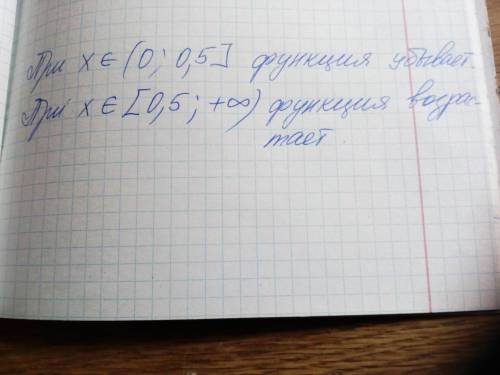 При x ∈ (0; 0,5] функция убывает.
При x ∈ [0,5; +∞) функция возрас-
тает